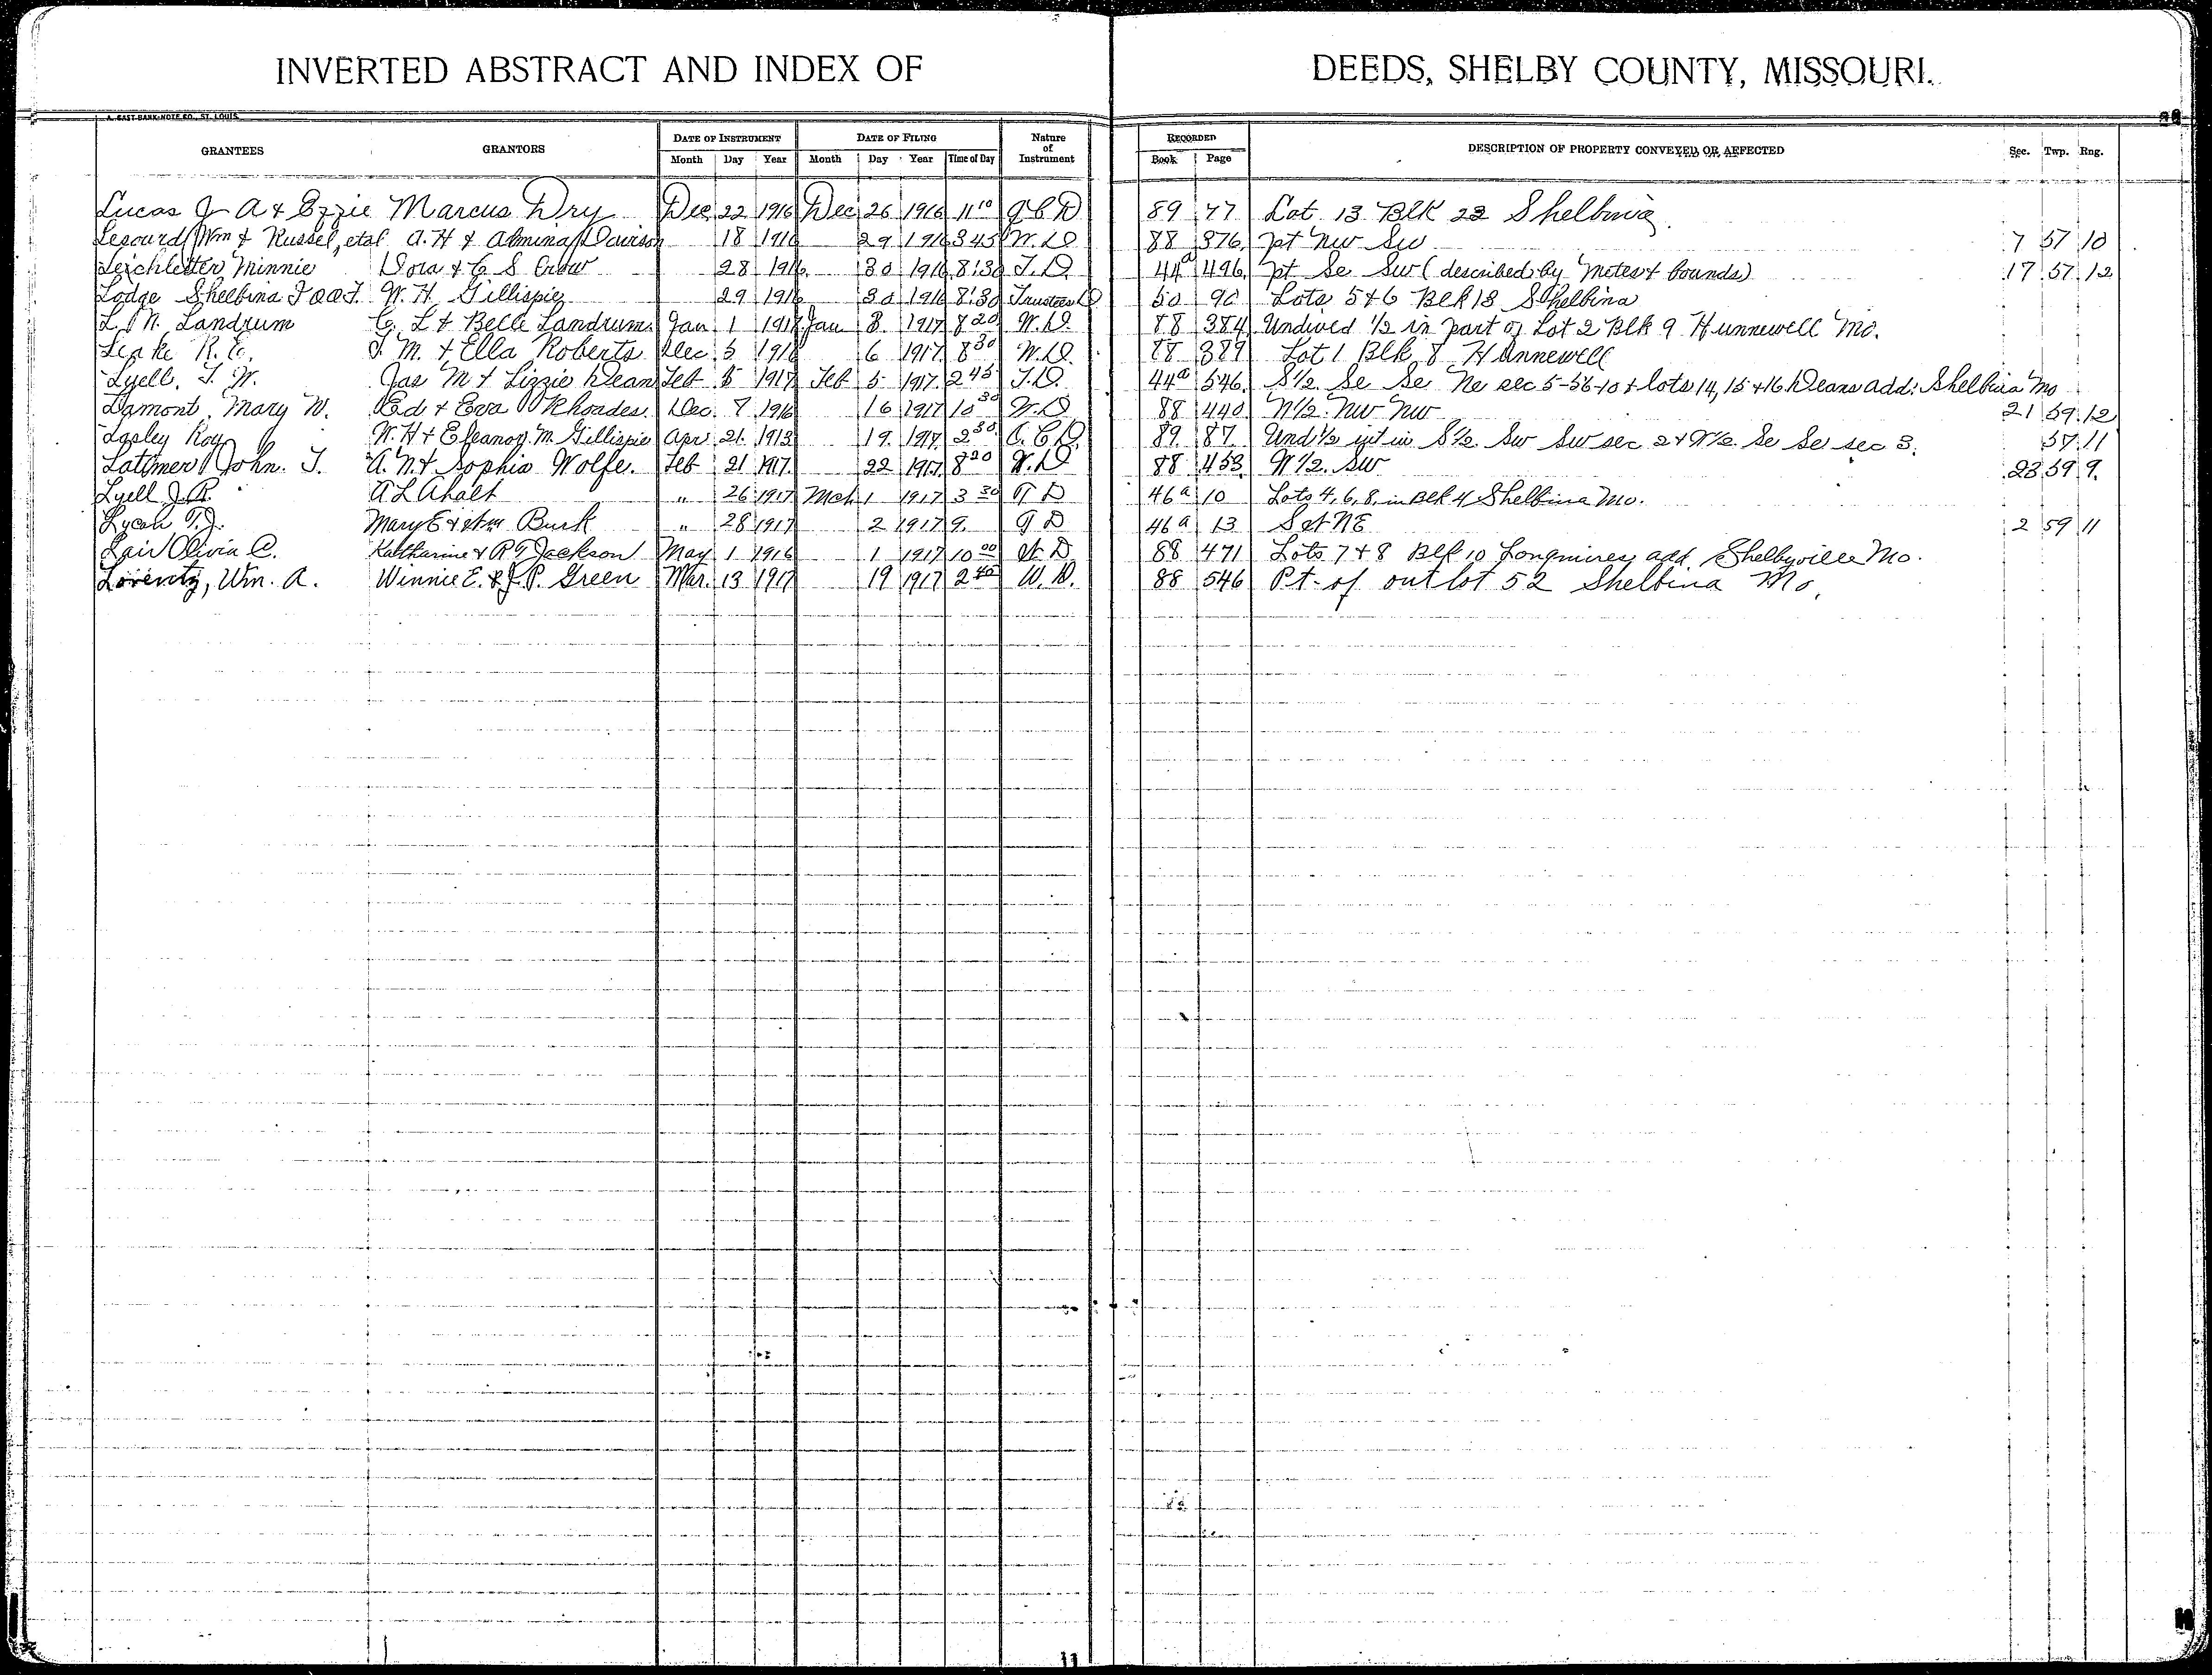 INVERTED ABSTRACT AND INDEX OF DEEDS, SHELBY COUNTY, MISSOURI.
A. GAST BANK NOTE CO., ST. LOUIS.
GRANTEES GRANTORS DATE OF INSTRUMENT DATE OF FILING Nature of Instrument RECORDED DESCRIPTION OF PROPERTY CONVEYED OR AFFECTED Sec. Twp. Rng.
Month Day Year Month Day Year Time of Day Book Page
Lucas J A & Ozzie Marcus Dry Dec 22 1916 Dec 26 1916 11 10 Q C D 89 77 Lot 13 Blk 23 Shelbina
Lesourd Wm & Russel, etal A. H & Almina Davison 18 1916 29 1916 3 45 W. D 88 376 pt Nw Sw 7 57 10
Leichleiter Minnie Dora & C S Crow 28 1916 30 1916 8:30 T. D. 44a 496 pt Se Sw (described by metes & bounds) 17 57 12
Lodge Shelbina I O O F. W. H. Gillispie 29 1916 30 1916 8:30 Trustees D 50 90 Lots 5 & 6 Blk 18 Shelbina
L. N. Landrum C. L & Belle Landrum Jan 1 1917 Jan 3 1917 8 20 W. D. 88 384 Undived 1/2 in part of Lot 2 Blk 9 Hunnewell Mo.
Leake R. E. T. M. & Ella Roberts Dec 5 1916 6 1917 8 30 W. D. 88 389 Lot 1 Blk 8 Hunnewell
Lyell, J. W. Jas M & Lizzie Dean Feb 5 1917 Feb 5 1917 2 45 T. D. 44a 546 S 1/2 Se Se Ne sec 5-56-10 & lots 14, 15 & 16 Deans add. Shelbina Mo
Lamont, Mary W. Ed & Eva Rhoades Dec. 7 1916 16 1917 10 30 W. D 88 440 N 1/2 Nw Nw 21 59 12
Lasley Roy W. H & Eleanor M. Gillispie Apr 21 1913 19 1917 2 30 Q. C D. 89 87 Und 1/2 int in S 1/2 Sw Sw sec 2 & N 1/2 Se Se sec 3. 57 11
Latimer John. T. A. N. & Sophia Wolfe. Feb 21 1917 22 1917 8 20 W. D 88 453 W 1/2. Sw 23 59 9
Lyell J. R. A L Ahalt " 26 1917 Mch 1 1917 3 30 T D 46a 10 Lots 4, 6, 8, in Blk 4 Shelbina Mo.
T. J. Mary E & Burk " 28 1917 2 1917 9 T D 46a 13 NE 2 59 11
Lair Olivia C. Katharine & R T Jackson May 1 1916 1 1917 10 00 W. D 88 471 Lots 7 & 8 Blk 10 Longmires add. Shelbyville Mo.
Lorentz, Wm. A. Winnie E. & J. P. Green Mar. 13 1917 19 1917 2 40 W. D. 88 546 Pt. of out lot 52 Shelbina Mo.